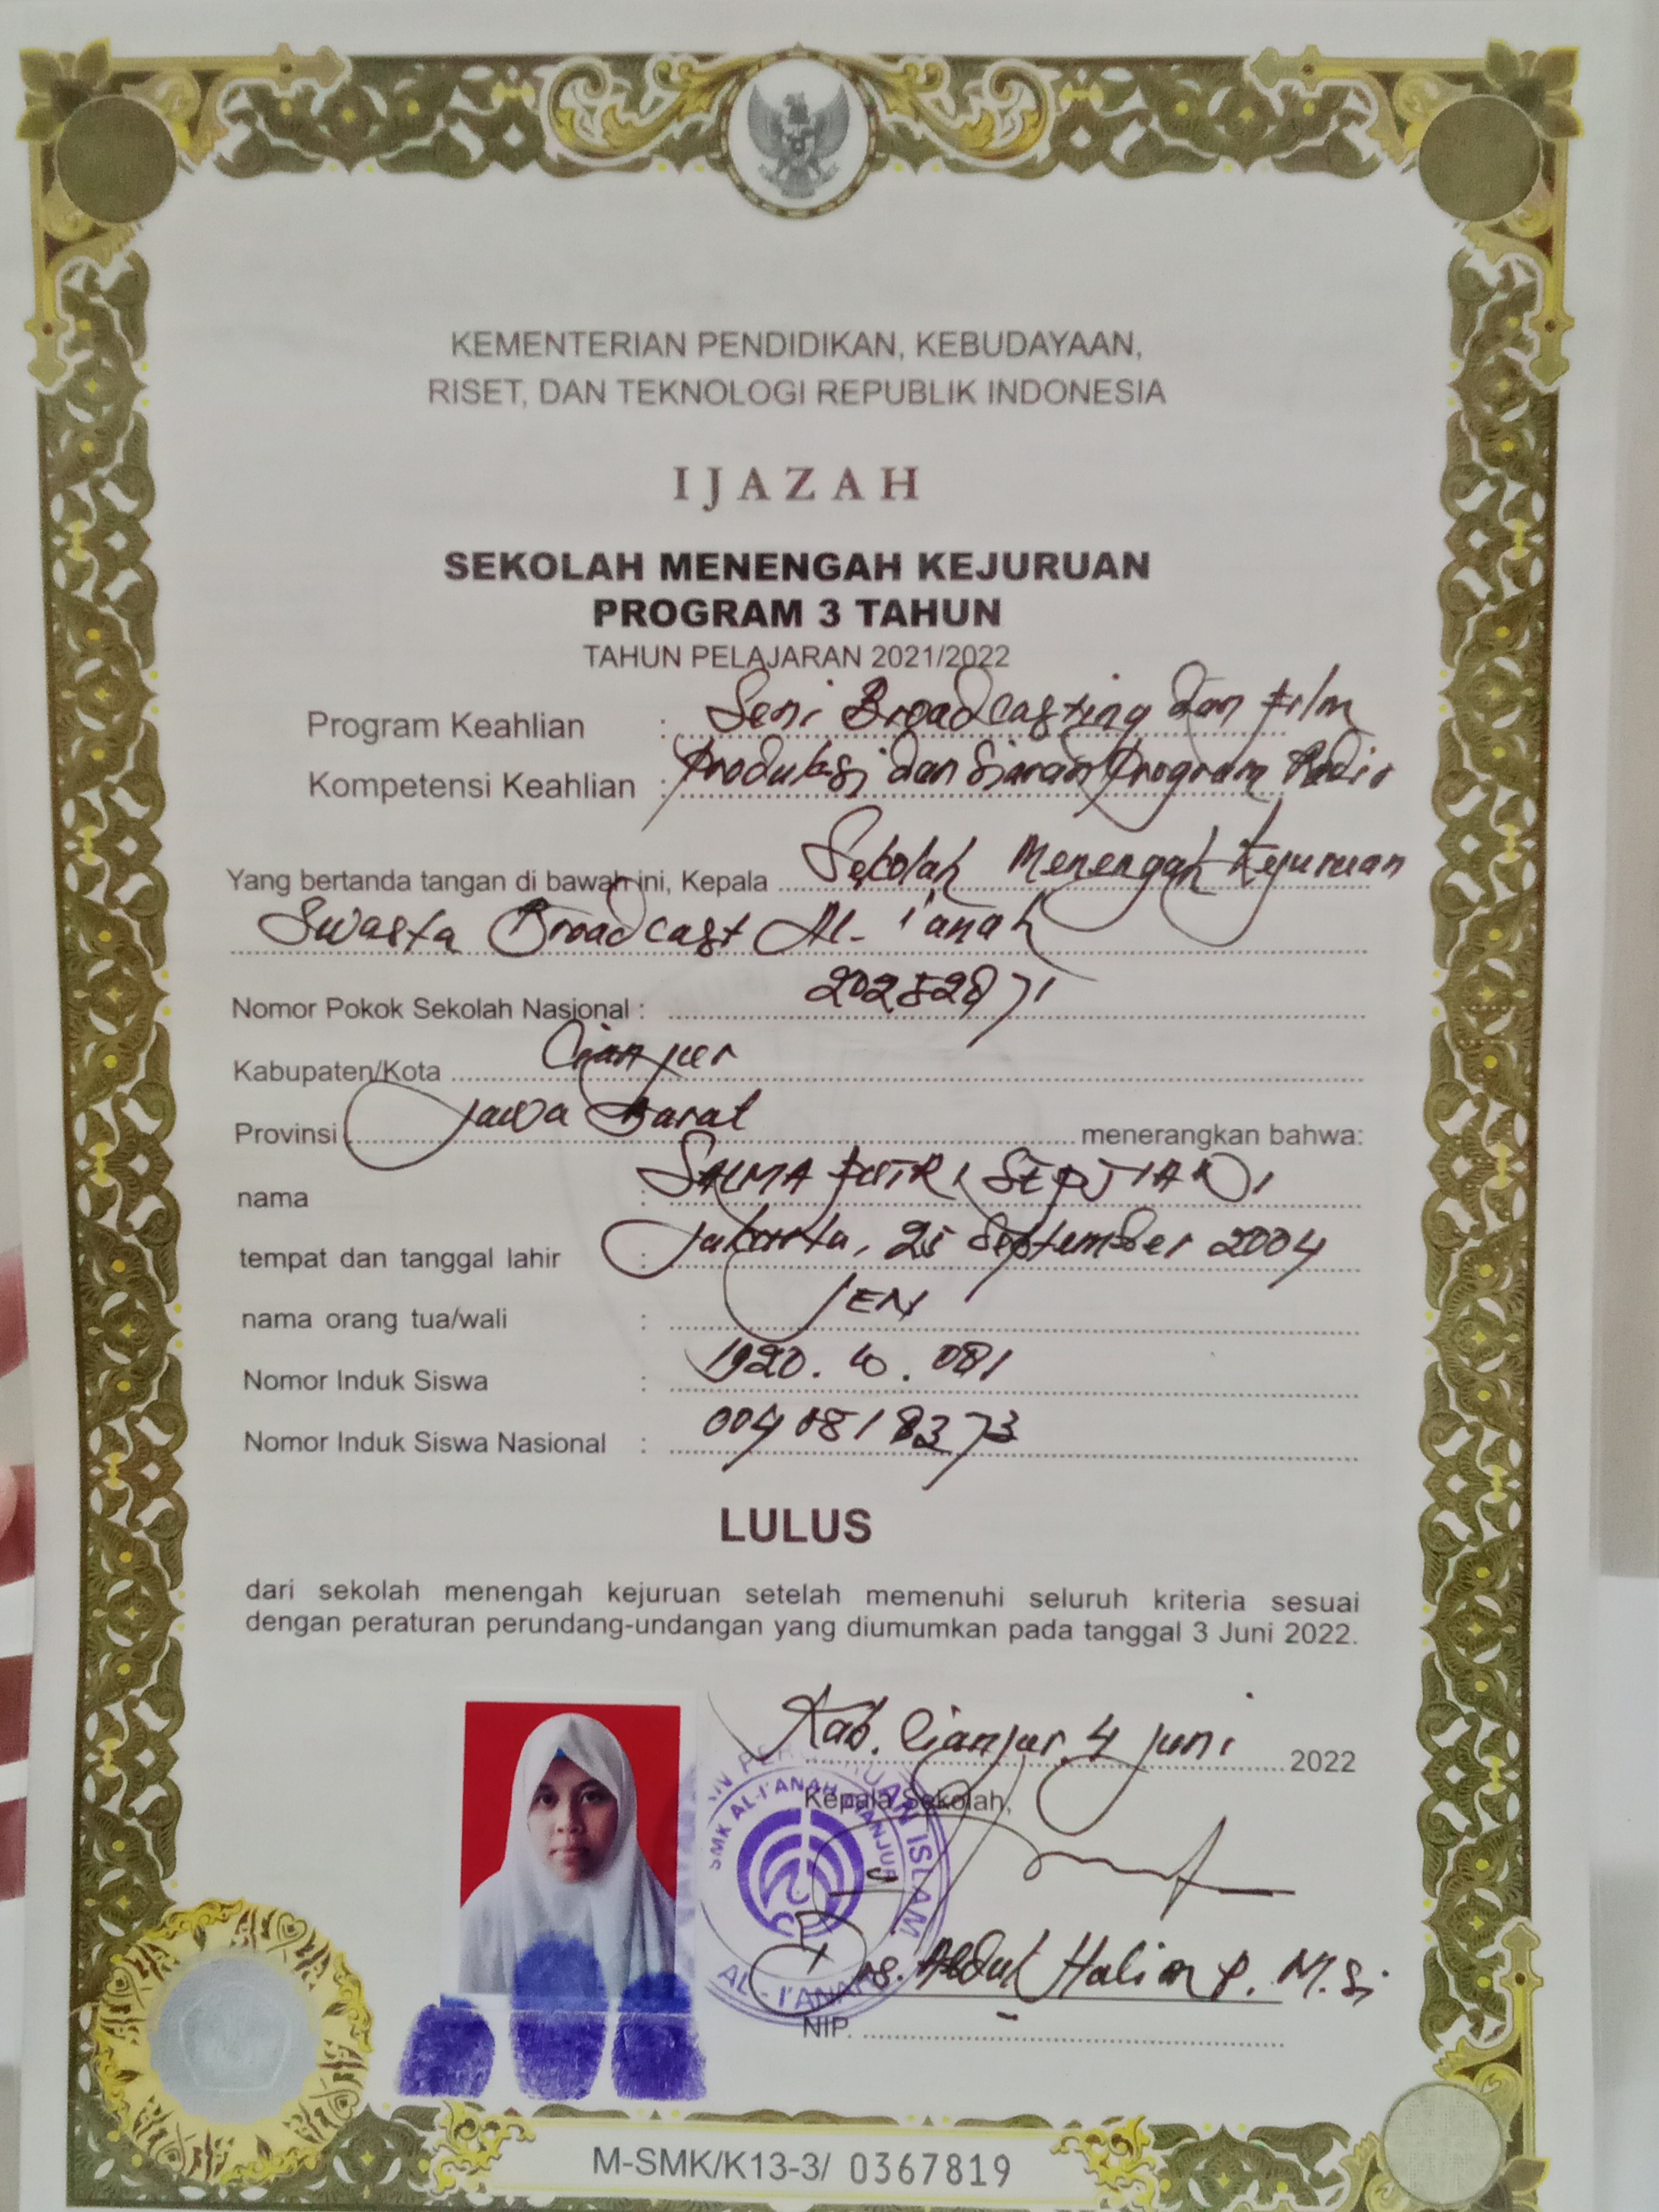 KEMENTERIAN PENDIDIKAN, KEBUDAYAAN,
RISET, DAN TEKNOLOGI REPUBLIK INDONESIA
IJAZAH
SEKOLAH MENENGAH KEJURUAN
PROGRAM 3 TAHUN
TAHUN PELAJARAN 2021/2022
Program Keahlian : Seni Broadcasting dan Film
Kompetensi Keahlian : Produksi dan Siaran Program Radio
Yang bertanda tangan di bawah ini, Kepala Sekolah Menengah Kejuruan
Swasta Broadcast Al-I'anah
Nomor Pokok Sekolah Nasional :
Kabupaten/Kota Cianjur
Provinsi Jawa Barat menerangkan bahwa:
nama : SALMA PUTRI SEPTIANI
tempat dan tanggal lahir : Jakarta, 25 September 2004
nama orang tua/wali :
Nomor Induk Siswa : 1920.10.081
Nomor Induk Siswa Nasional : 0040818373
LULUS
dari sekolah menengah kejuruan setelah memenuhi seluruh kriteria sesuai
dengan peraturan perundang-undangan yang diumumkan pada tanggal 3 Juni 2022.
Kab. Cianjur, 4 Juni 2022
Kepala Sekolah,
SMK AL-I'ANAH CIANJUR
ISLAM
AL-I'ANAH
Drs. Abdul Halim P. M.Si
NIP. -
M-SMK/K13-3/ 0367819